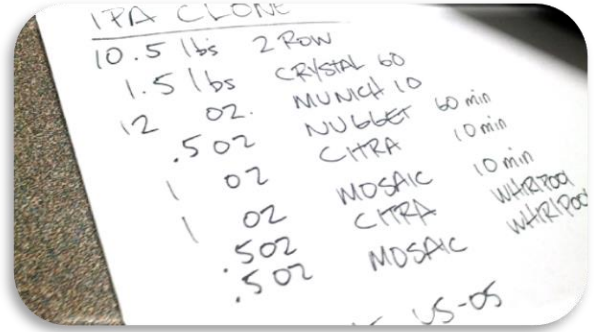 IPA CLONE
10.5 lbs 2 ROW
1.5 lbs CRYSTAL 60
12 OZ. MUNICH 10
.5 OZ NUGGET 60 min
1 OZ CITRA 10 min
1 OZ MOSAIC 10 min
.5 OZ CITRA WHIRLPOOL
.5 OZ MOSAIC WHIRLPOOL
US-05